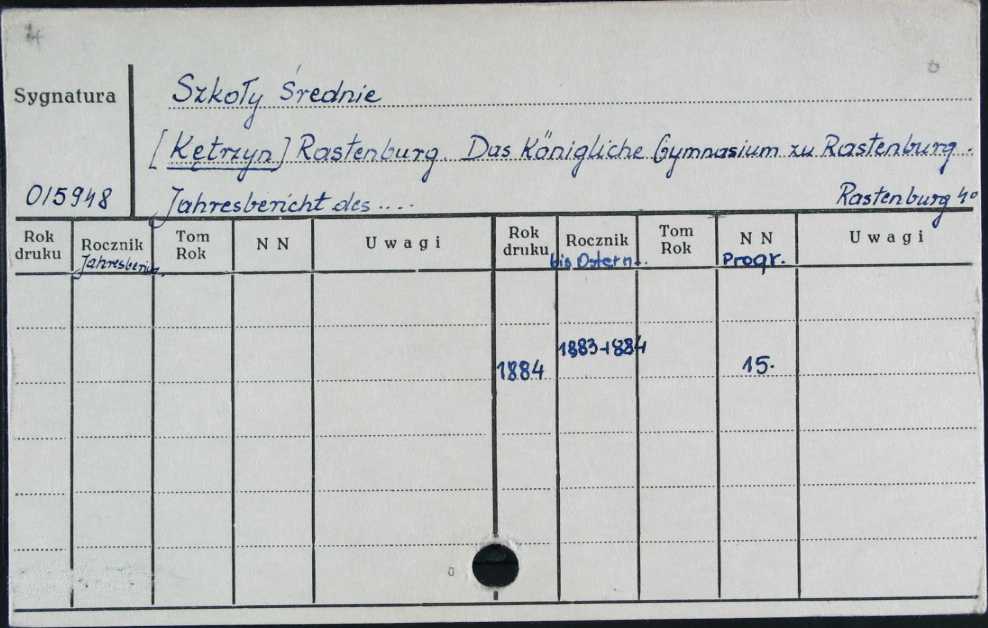 Sygnatura
Szkoły Średnie
[Kętrzyn] Rastenburg. Das Königliche Gymnasium zu Rastenburg.
015948
Jahresbericht des ....
Rastenburg 4°
Rok druku
Rocznik
Tom Rok
N N
Uwagi
Rok druku
Rocznik
Tom Rok
N N
Uwagi
bis Ostern..
Progr.
1883-1884
1884
15.